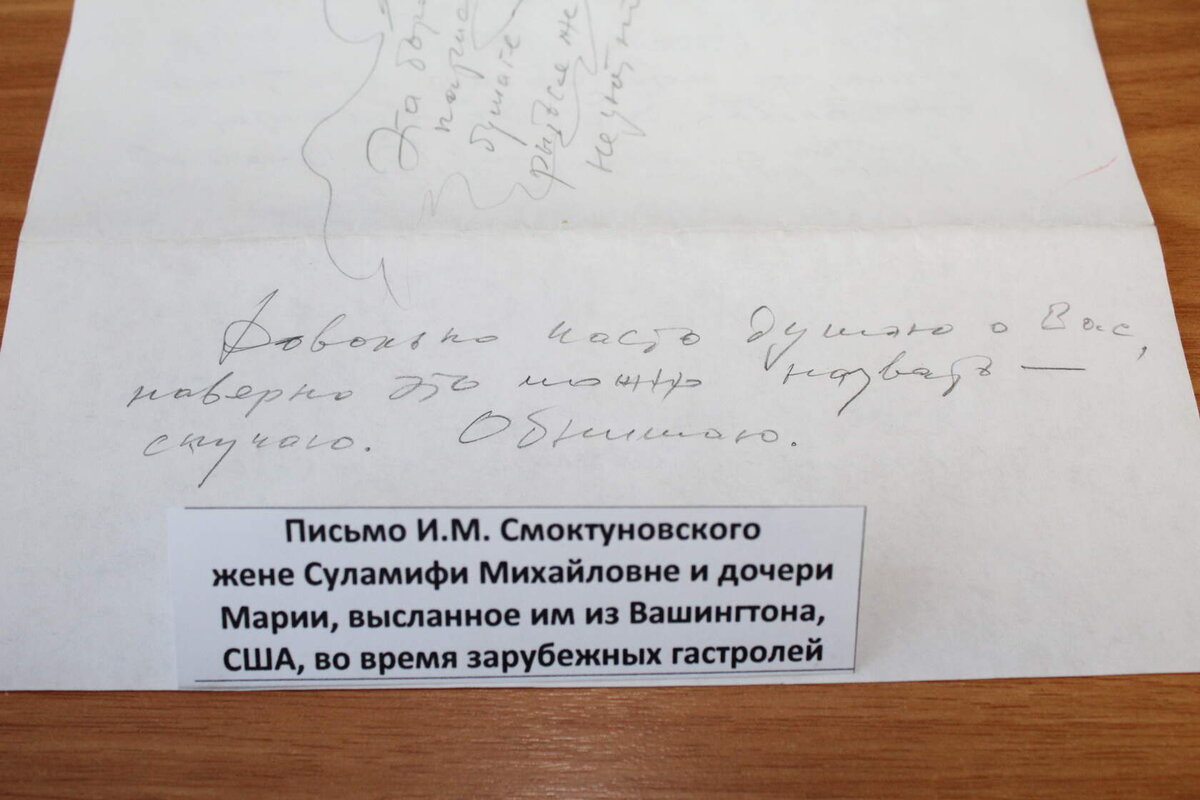 Эта
бумаге
Довольно часто думаю о Вас,
наверно это можно назвать —
скучаю. Обнимаю.
Письмо И.М. Смоктуновского
жене Суламифи Михайловне и дочери
Марии, высланное им из Вашингтона,
США, во время зарубежных гастролей